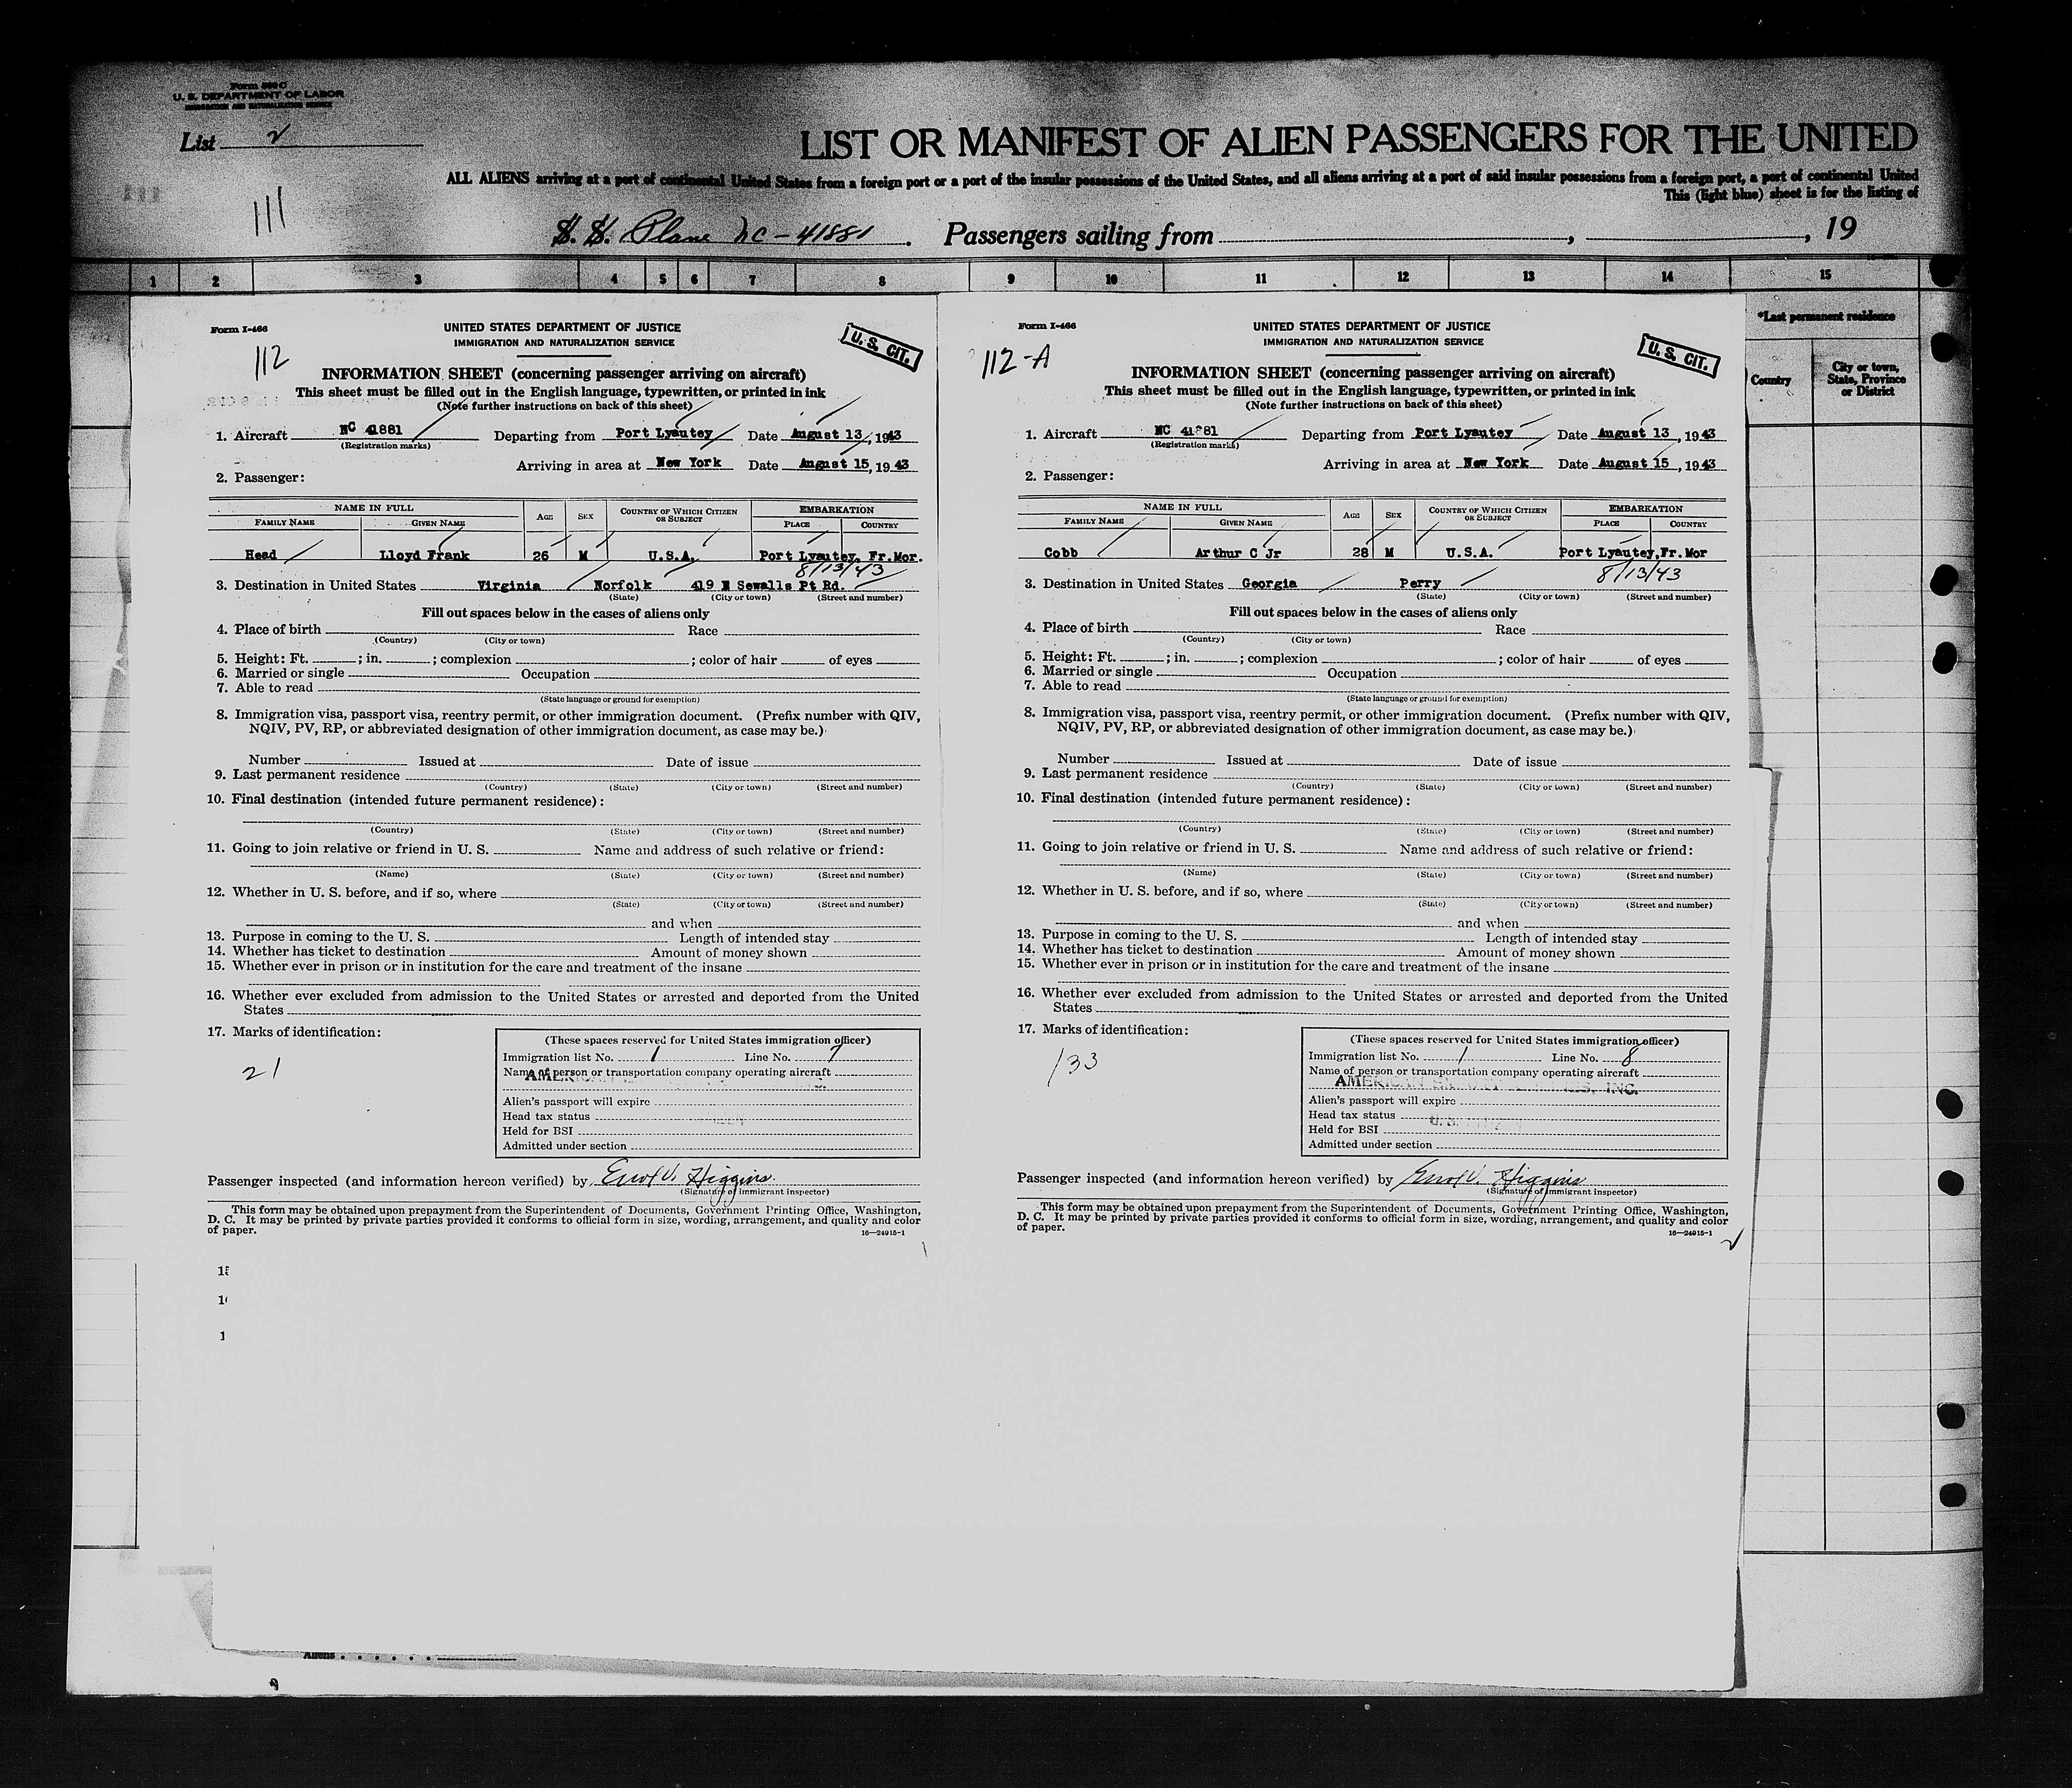 Form 500 C
U. S. DEPARTMENT OF LABOR
IMMIGRATION AND NATURALIZATION SERVICE
List 2
LIST OR MANIFEST OF ALIEN PASSENGERS FOR THE UNITED
ALL ALIENS arriving at a port of continental United States from a foreign port or a port of the insular possessions of the United States, and all aliens arriving at a port of said insular possessions from a foreign port, a port of continental United
This (light blue) sheet is for the listing of
111
S. S. Plane NC-41881. Passengers sailing from , , 19
1 2 3 4 5 6 7 8 9 10 11 12 13 14 15
*Last permanent residence
Country
City or town,
State, Province
or District
Form I-466
112
UNITED STATES DEPARTMENT OF JUSTICE
IMMIGRATION AND NATURALIZATION SERVICE
U. S. CIT.
INFORMATION SHEET (concerning passenger arriving on aircraft)
This sheet must be filled out in the English language, typewritten, or printed in ink
(Note further instructions on back of this sheet)
1. Aircraft NC 41881 Departing from Port Lyautey Date August 13, 1943
(Registration marks)
Arriving in area at New York Date August 15, 1943
2. Passenger:
NAME IN FULL AGE SEX COUNTRY OF WHICH CITIZEN OR SUBJECT EMBARKATION
FAMILY NAME GIVEN NAME PLACE COUNTRY
Head Lloyd Frank 26 M U.S.A. Port Lyautey, Fr.Mor.
8/13/43
3. Destination in United States Virginia Norfolk 419 N Sewalls Pt Rd.
(State) (City or town) (Street and number)
Fill out spaces below in the cases of aliens only
4. Place of birth Race
(Country) (City or town)
5. Height: Ft. ; in. ; complexion ; color of hair of eyes
6. Married or single Occupation
7. Able to read
(State language or ground for exemption)
8. Immigration visa, passport visa, reentry permit, or other immigration document. (Prefix number with QIV,
NQIV, PV, RP, or abbreviated designation of other immigration document, as case may be.)
Number Issued at Date of issue
9. Last permanent residence
(Country) (State) (City or town) (Street and number)
10. Final destination (intended future permanent residence):
(Country) (State) (City or town) (Street and number)
11. Going to join relative or friend in U. S. Name and address of such relative or friend:
(Name) (State) (City or town) (Street and number)
12. Whether in U. S. before, and if so, where
(State) (City or town) (Street and number)
and when
13. Purpose in coming to the U. S. Length of intended stay
14. Whether has ticket to destination Amount of money shown
15. Whether ever in prison or in institution for the care and treatment of the insane
16. Whether ever excluded from admission to the United States or arrested and deported from the United
States
17. Marks of identification:
21
(These spaces reserved for United States immigration officer)
Immigration list No. 1 Line No. 7
Name of person or transportation company operating aircraft
Alien's passport will expire
Head tax status
Held for BSI
Admitted under section
Passenger inspected (and information hereon verified) by Errol V. Higgins.
(Signature of immigrant inspector)
This form may be obtained upon prepayment from the Superintendent of Documents, Government Printing Office, Washington,
D. C. It may be printed by private parties provided it conforms to official form in size, wording, arrangement, and quality and color
of paper.
16—24915-1
Form I-466
112-A
UNITED STATES DEPARTMENT OF JUSTICE
IMMIGRATION AND NATURALIZATION SERVICE
U. S. CIT.
INFORMATION SHEET (concerning passenger arriving on aircraft)
This sheet must be filled out in the English language, typewritten, or printed in ink
(Note further instructions on back of this sheet)
1. Aircraft NC 41881 Departing from Port Lyautey Date August 13, 1943
(Registration marks)
Arriving in area at New York Date August 15, 1943
2. Passenger:
NAME IN FULL AGE SEX COUNTRY OF WHICH CITIZEN OR SUBJECT EMBARKATION
FAMILY NAME GIVEN NAME PLACE COUNTRY
Cobb Arthur C Jr 28 M U.S.A. Port Lyautey, Fr.Mor
8/13/43
3. Destination in United States Georgia Perry
(State) (City or town) (Street and number)
Fill out spaces below in the cases of aliens only
4. Place of birth Race
(Country) (City or town)
5. Height: Ft. ; in. ; complexion ; color of hair of eyes
6. Married or single Occupation
7. Able to read
(State language or ground for exemption)
8. Immigration visa, passport visa, reentry permit, or other immigration document. (Prefix number with QIV,
NQIV, PV, RP, or abbreviated designation of other immigration document, as case may be.)
Number Issued at Date of issue
9. Last permanent residence
(Country) (State) (City or town) (Street and number)
10. Final destination (intended future permanent residence):
(Country) (State) (City or town) (Street and number)
11. Going to join relative or friend in U. S. Name and address of such relative or friend:
(Name) (State) (City or town) (Street and number)
12. Whether in U. S. before, and if so, where
(State) (City or town) (Street and number)
and when
13. Purpose in coming to the U. S. Length of intended stay
14. Whether has ticket to destination Amount of money shown
15. Whether ever in prison or in institution for the care and treatment of the insane
16. Whether ever excluded from admission to the United States or arrested and deported from the United
States
17. Marks of identification:
133
(These spaces reserved for United States immigration officer)
Immigration list No. 1 Line No. 8
Name of person or transportation company operating aircraft
AMERICAN INC.
Alien's passport will expire
Head tax status
Held for BSI
Admitted under section
Passenger inspected (and information hereon verified) by Errol V. Higgins
(Signature of immigrant inspector)
This form may be obtained upon prepayment from the Superintendent of Documents, Government Printing Office, Washington,
D. C. It may be printed by private parties provided it conforms to official form in size, wording, arrangement, and quality and color
of paper.
16—24915-1
Aliens